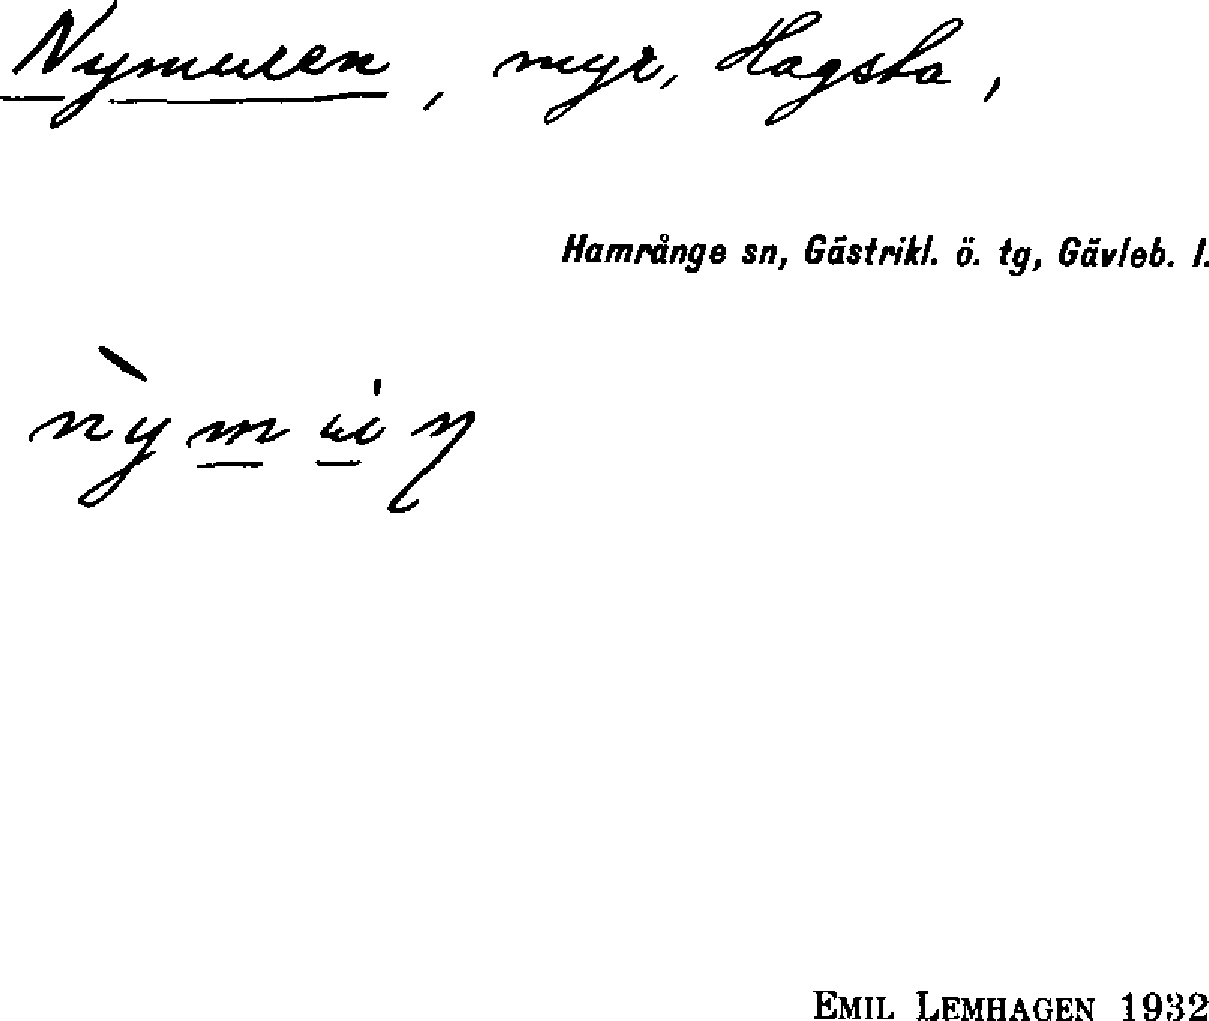 Nymuren, myr, Hagsta,
Hamrånge sn, Gästrikl. ö. tg, Gävleb. l.
EMIL LEMHAGEN 1932